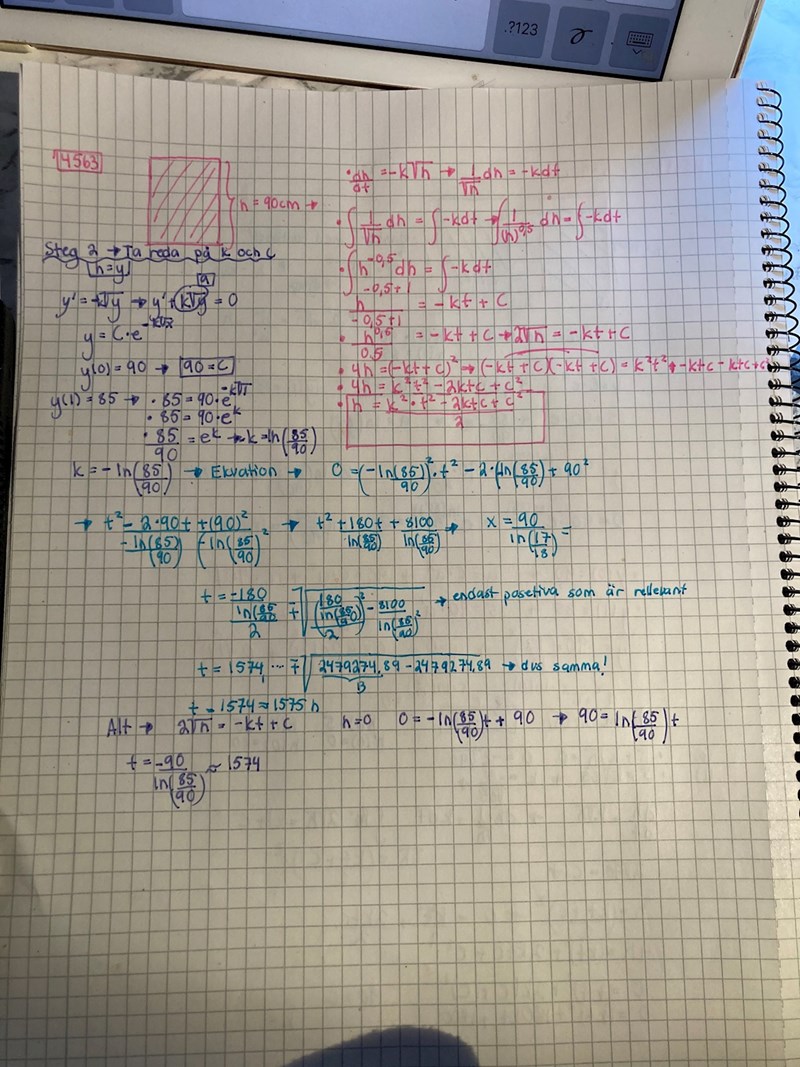 .?123
4563
h = 90cm →
• dh/dt = -k√h → 1/√h dh = -kdt
• ∫ 1/√h dh = ∫ -kdt → ∫ 1/(h)^0,5 dh = ∫ -kdt
• ∫ h^-0,5 dh = ∫ -kdt
h^(-0,5+1)/(-0,5+1) = -kt + C
• h^0,5/0,5 = -kt + C → 2√h = -kt + C
• 4h = (-kt + C)² → (-kt + C)(-kt + C) = k²t² - ktc - ktc + c²
• 4h = k²t² - 2ktc + c²
• h = k²·t² - 2ktc + c² / 2
Steg 2 → Ta reda på k och C
h = y
y' = -k√y → y' + k√y = 0
y(0) = 90 → 90 = C
y(1) = 85 →
• 85 = 90·e^k
• 85/90 = e^k → k = ln(85/90)
k = -ln(85/90) → Ekvation → 0 = (-ln(85/90))²·t² - 2·(ln(85/90) + 90²
→ t² - 2·90t/-ln(85/90) + (90)²/(-ln(85/90))² → t² + 180t/ln(85/90) + 8100/ln(85/90) → x = 90/ln(17/18) =
t = -180/ln(85/90)/2 ∓ √((180/ln(85/90)/2)² - 8100/ln(85/90)²) → endast posetiva som är rellevant
t = 1574, ... ∓ √(2479274,89 - 2479274,89) → dvs samma!
B
t = 1574 ≈ 1575 h
Alt → 2√h = -kt + C h=0 0 = -ln(85/90)t + 90 → 90 = ln(85/90)t
t = -90/ln(85/90) ≈ 1574